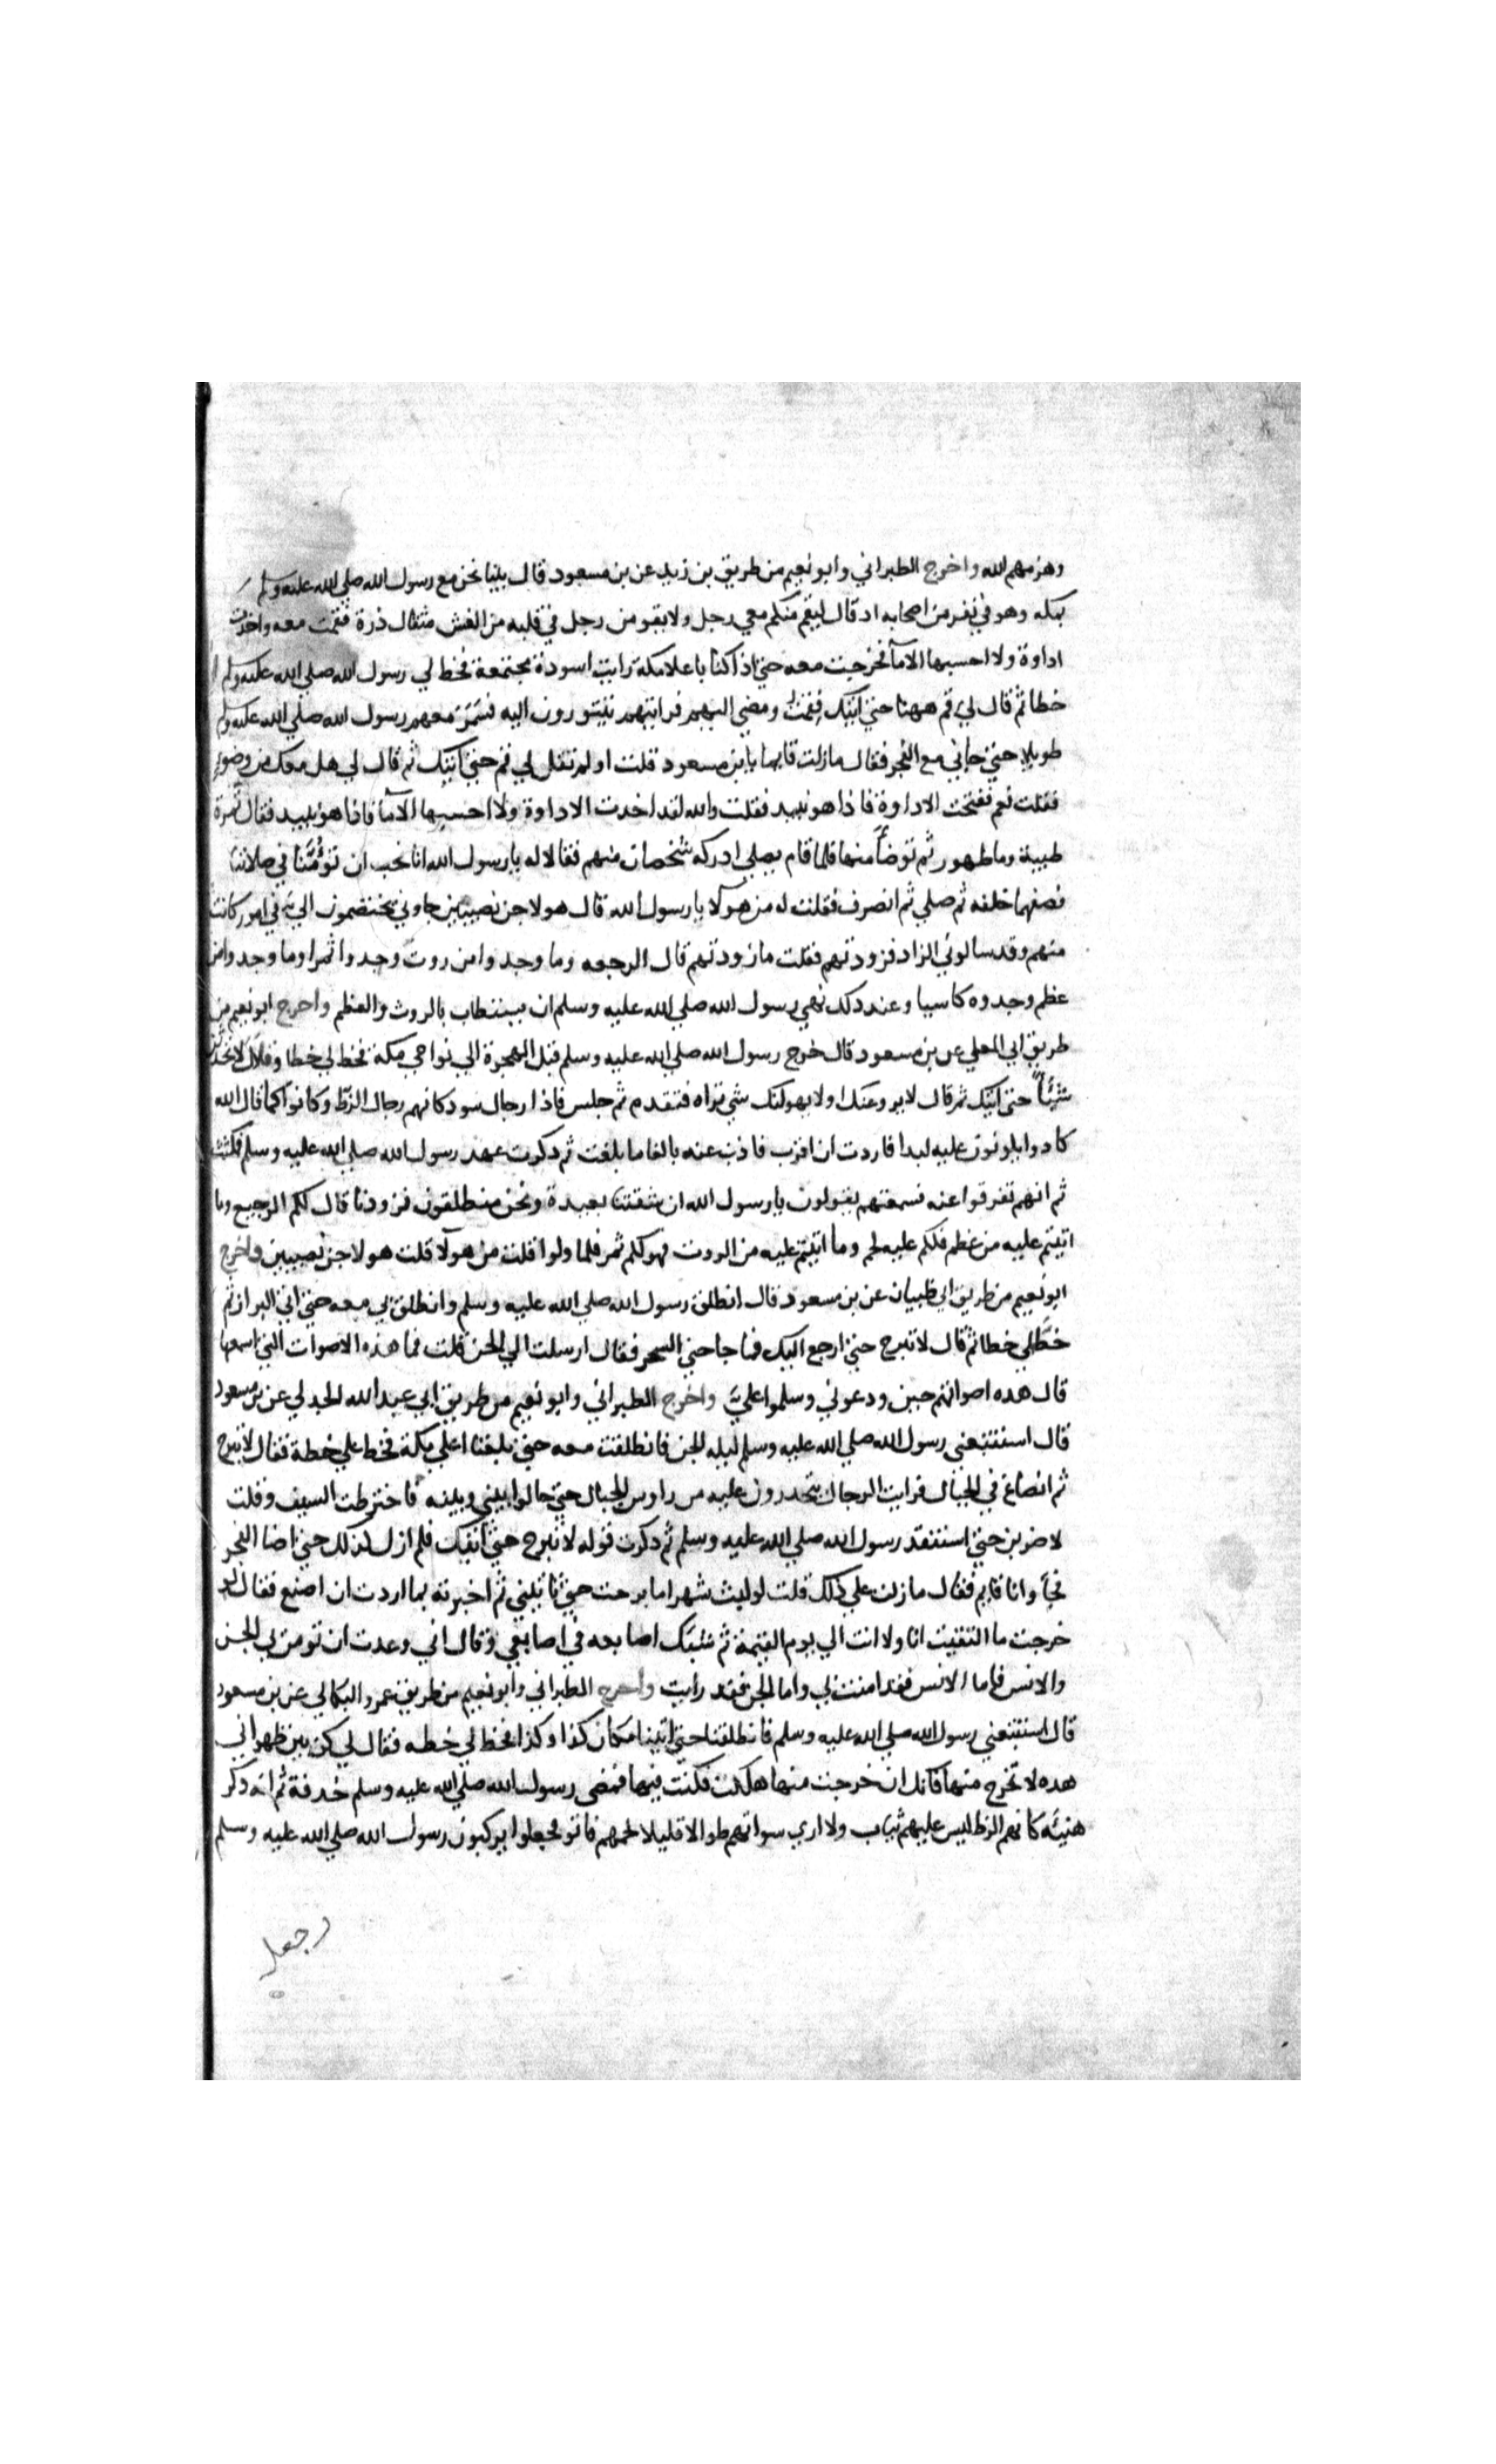 وهزمهم الله واخرج الطبراني وابو نعيم من طريق بن زيد عن بن مسعود قال بينا نحن مع رسول الله صلي الله عليه وسلم
بمكه وهو في نفر من اصحابه اد قال ليقم منكم معي رجل ولا يقومن رجل في قلبه من الغش مثقال ذرة فقمت معه واخذت
اداوة ولا احسبها الا مآ فخرجت معه حتي اذا كنا باعلا مكة رايت اسودة مجتمعة فخط لي رسول الله صلي الله عليه وسلم
خطا ثم قال لي قم ههنا حتي اتيك فقمت ومضي اليهم فرايتهم يتثورون اليه فسمر معهم رسول الله صلي الله عليه وسلم
طويلا حتي جاني مع الفجر فقال مازلت قايما يابن مسعود قلت اولم تقل لي قم حتي آتيك ثم قال لي هل معك من وضوء
فقلت نعم ففتحت الاداوة فاذا هو نبيد فقلت والله لقد اخدت الاداوة ولا احسبها الا مآ فاذا هو نبيد فقال تمرة
طيبة وما طهور ثم توضأ منها فلما قام يصلي ادركه شخصان منهم فقالا له يارسول الله انا نحب ان تؤمنا في صلاتنا
فصفهما خلفه ثم صلي ثم انصرف فقلت له من هولآ يارسول الله قال هولا جن نصيبين جاوني يختصمون الي في امور كانت
منهم وقد سالوني الزاد فزودتهم فقلت ما زودتهم قال الرجعه وما وجدوا من روث وجدوا ثمرا وما وجدوا من
عظم وجدوه كاسيا وعند دلك نهي رسول الله صلي الله عليه وسلم ان يستطاب بالروث والعظم واخرج ابو نعيم من
طريق ابي المعلي عن بن مسعود قال خرج رسول الله صلي الله عليه وسلم قبل الهجرة الي نواحي مكة فخط لي خطا وقال لا تحدثن
شيئا حتي اتيك ثم قال لا يروعنك او لا يهولنك شي تراه فتقدم ثم جلس فاذا رجال سود كانهم رجال الزط وكانوا كما قال الله
كادوا يكونون عليه لبدا فاردت ان اقرب فاذب عنه بالغا ما بلغت ثم دكرت عهد رسول الله صلي الله عليه وسلم فمكثت
ثم انهم تفرقوا عنه فسمعتهم يقولون يارسول الله ان شقتنا بعيدة ونحن منطلقون فزودنا قال لكم الرجيع وما
اتيتم عليه من عظم فلكم عليه لحم وما اتيتم عليه من الروث فهو لكم ثمر فلما ولوا قلت من هولآ قلت هولا جن نصيبين واخرج
ابو نعيم من طريق ابي ظبيان عن بن مسعود قال انطلق رسول الله صلي الله عليه وسلم وانطلق بي معه حتي اتي البراز ثم
خط لي خطا ثم قال لا تبرح حتي ارجع اليك فما جا حتي السحر فقال ارسلت الي الجن قلت فما هذه الاصوات التي اسمعها
قال هده اصواتهم حين ودعوني وسلموا علي واخرج الطبراني وابو نعيم من طريق ابي عبد الله الجدلي عن بن مسعود
قال استتبعني رسول الله صلي الله عليه وسلم ليله الجن فانطلقت معه حتي بلغنا اعلي مكة فخط علي خطة فقال لا تبرح
ثم انصاع في الجبال فرايت الرجال يتحدرون عليه من راوس الجبال حتي حالوا بيني وبينه فاخترطت السيف وقلت
لاضربن حتي استنقد رسول الله صلي الله عليه وسلم ثم دكرت قوله لا تبرح حتي آتيك فلم ازل كذلك حتي اضا الفجر
فجآ وانا قايم فقال مازلت علي كذلك قلت لو لبث شهرا ما برحت حتي تاتيني ثم اخبرته بما اردت ان اصنع فقال لو
خرجت ما التقيت انا ولا انت الي يوم القيمة ثم شبك اصابعه في اصابعي وقال اني وعدت ان تومن بي الجن
والانس فاما الانس فقد امنت بي واما الجن فقد رايت واخرج الطبراني وابو نعيم من طريق عمرو البكالي عن بن مسعود
قال استتبعني رسول الله صلي الله عليه وسلم فانطلقنا حتي اتينا مكان كذا وكذا فخط لي خطه فقال لي كن بين ظهراني
هده لا تخرج منها فانك ان خرجت منها هلكت فكنت فيها فمضي رسول الله صلي الله عليه وسلم خدفة ثم انه دكر
هنيئه كانهم الزط ليس عليهم ثياب ولا اري سواتهم طوالا قليلا لحمهم فاتو فجعلوا يركبون رسول الله صلي الله عليه وسلم